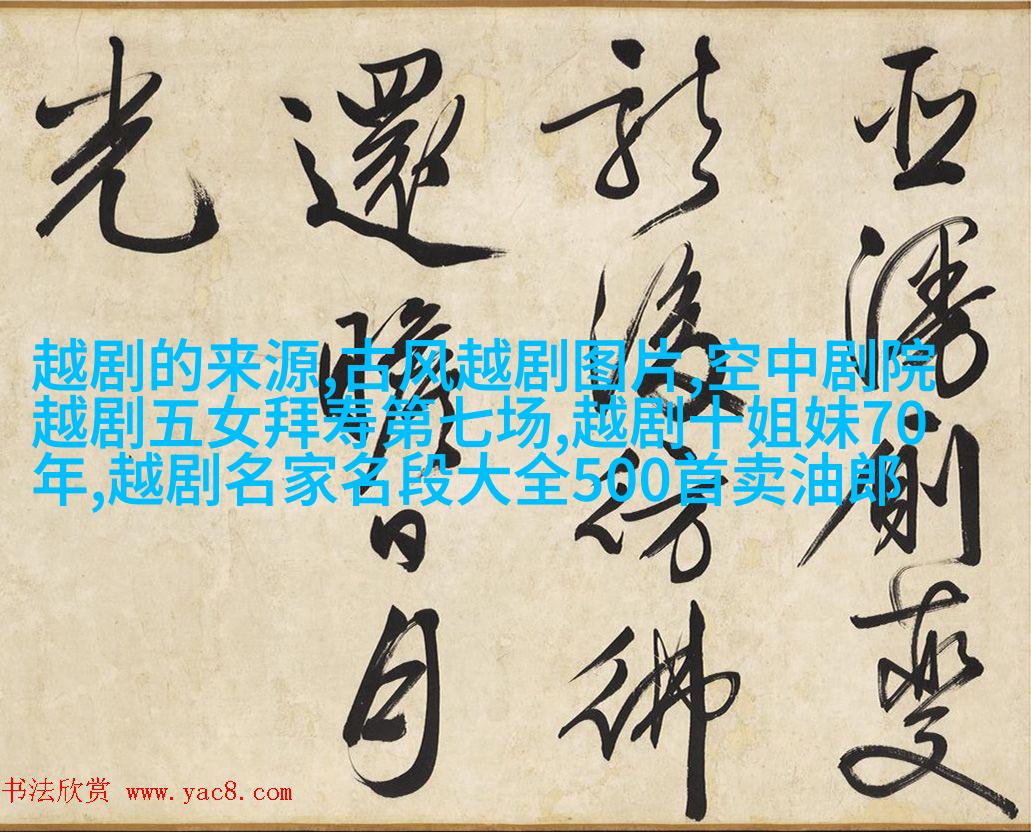 越剧的来源,古风越剧图片,空中剧院
越剧五女拜寿第七场,越剧十姐妹70
年,越剧名家名段大全500首卖油郎
潘劇變
彷彿
還瞻日月
光
书法欣赏 www.yac8.com